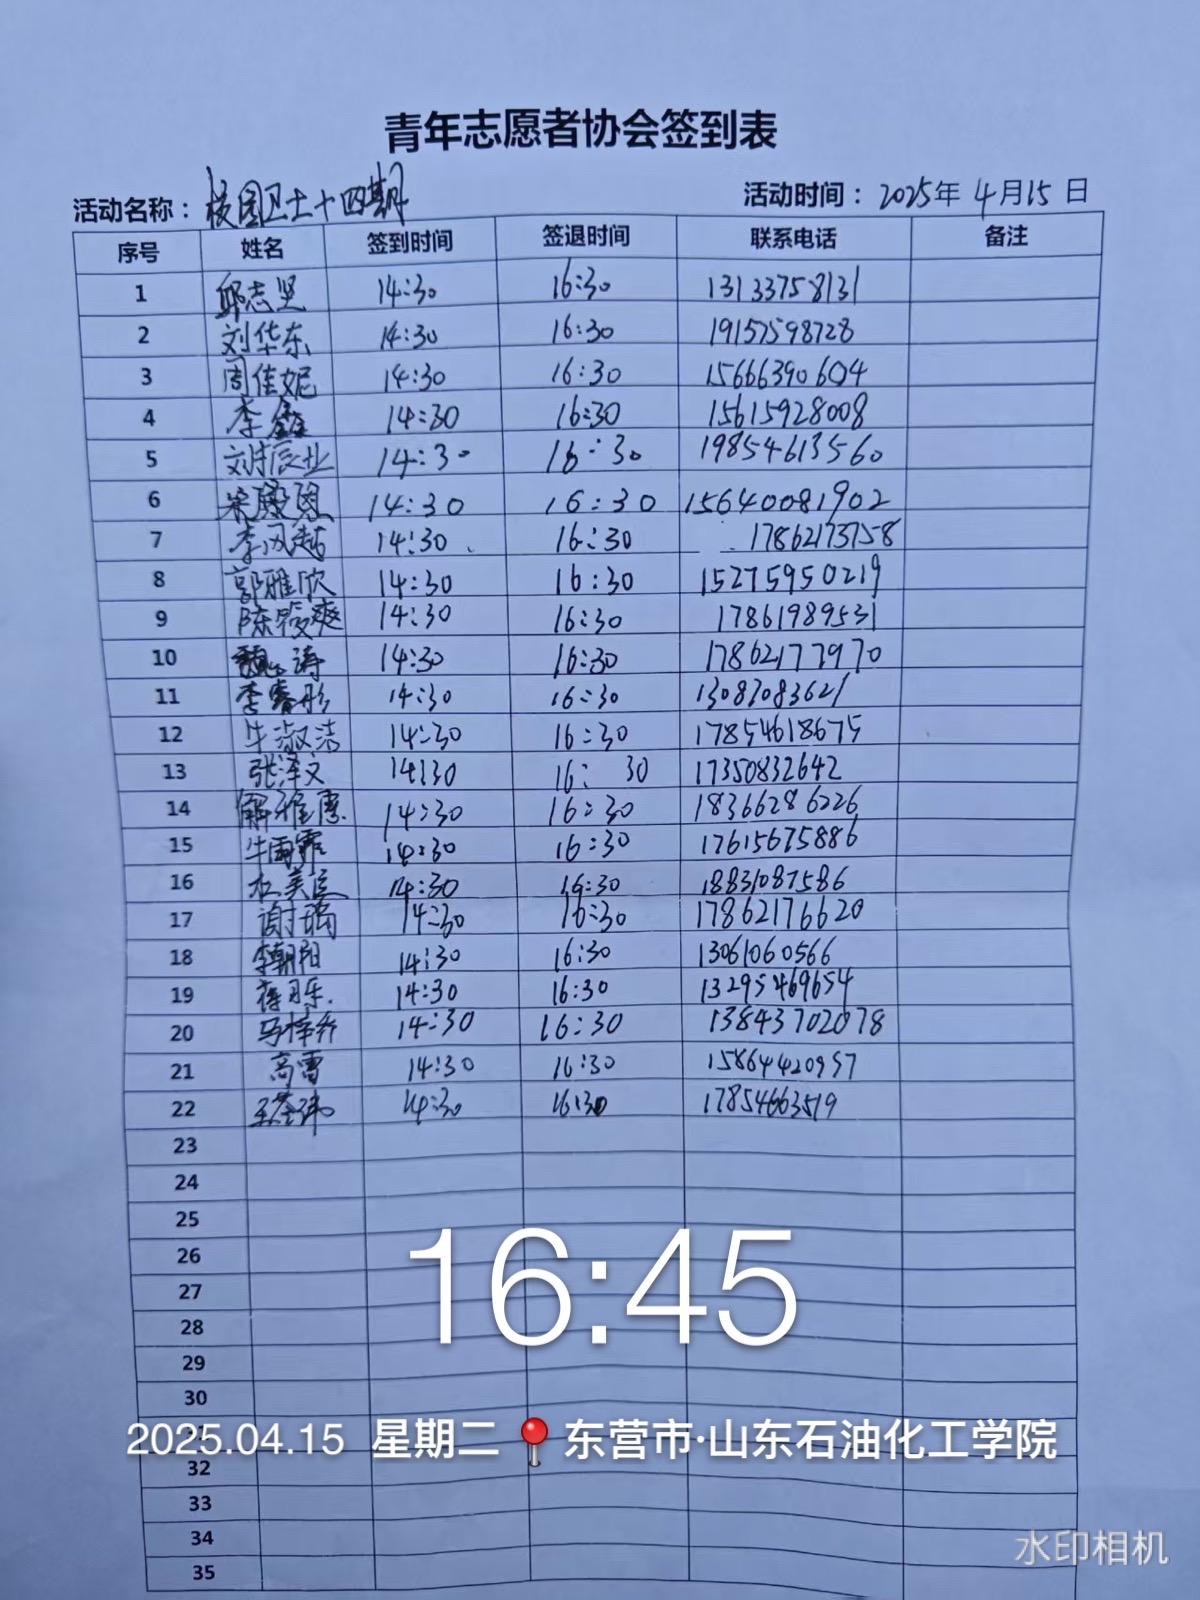 青年志愿者协会签到表
活动名称：校园卫士十四期 活动时间：2025年4月15日
序号 姓名 签到时间 签退时间 联系电话 备注
1 邱志坚 14:30 16:30 13133758131
2 刘华东 14:30 16:30 19157598728
3 周佳妮 14:30 16:30 15666390604
4 李鑫 14:30 16:30 15615928008
5 刘振业 14:30 16:30 19854613560
6 14:30 16:30 15640081902
7 14:30 16:30 17862173758
8 郭雅欣 14:30 16:30 15275950219
9 陈筱爽 14:30 16:30 17861989531
10 魏涛 14:30 16:30 17862177970
11 李睿彤 14:30 16:30 13087083621
12 牛淑洁 14:30 16:30 17854618675
13 张泽文 14:30 16:30 17350832642
14 解雅惠 14:30 16:30 18366286226
15 牛雨霏 14:30 16:30 17615675886
16 杜美臣 14:30 16:30 18831087586
17 谢瑞 14:30 16:30 17862176620
18 李朝阳 14:30 16:30 13061060566
19 14:30 16:30 13295469654
20 马梓乔 14:30 16:30 13843702078
21 高雷 14:30 16:30 15864420957
22 14:30 16:30 17854663519
23
24
25
26
27
28
29
30
32
33
34
35
16:45
2025.04.15 星期二 东营市·山东石油化工学院
水印相机